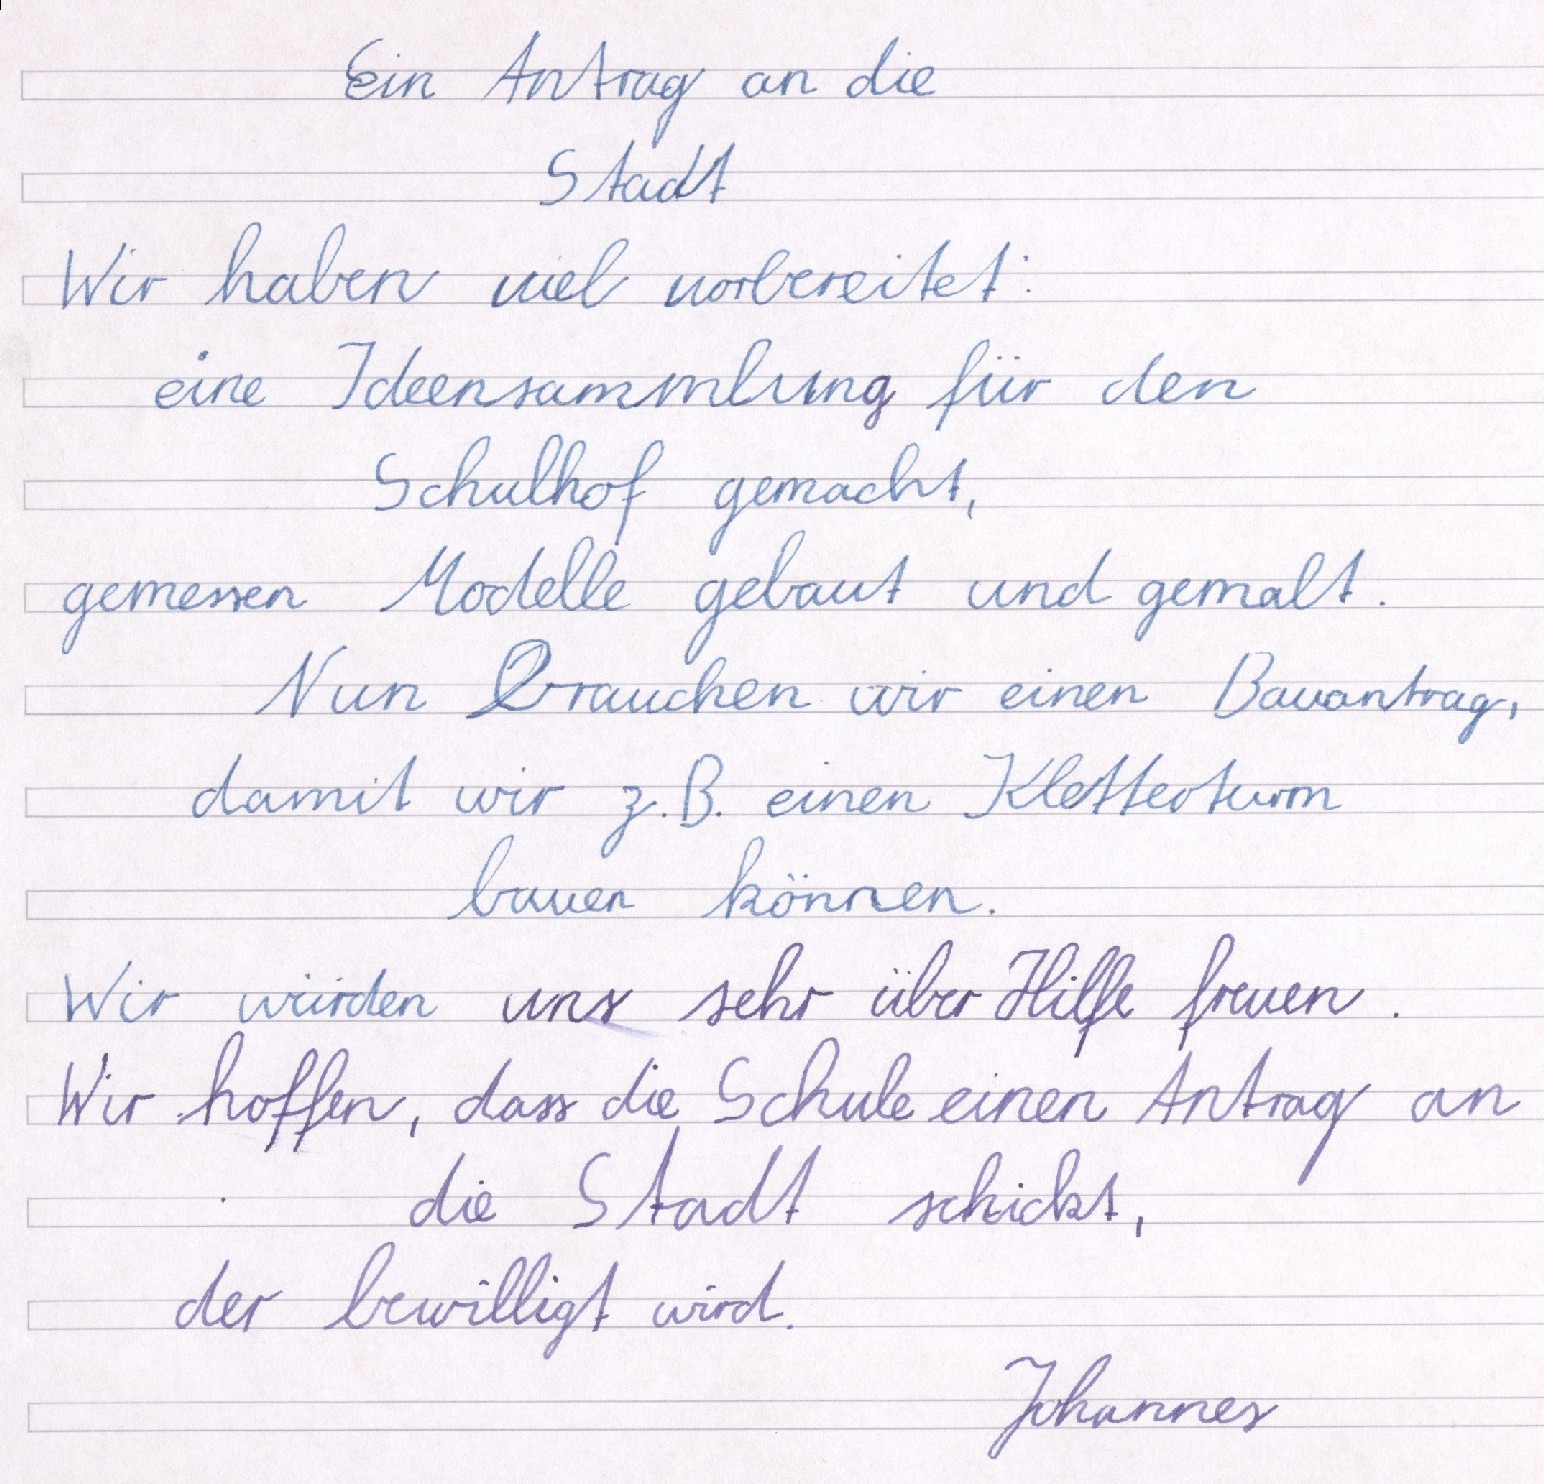 Ein Antrag an die
Stadt
Wir haben viel vorbereitet:
eine Ideensammlung für den
Schulhof gemacht,
gemessen Modelle gebaut und gemalt.
Nun brauchen wir einen Bauantrag,
damit wir z.B. einen Kletterturm
bauen können.
Wir würden uns sehr über Hilfe freuen.
Wir hoffen, dass die Schule einen Antrag an
die Stadt schickt,
der bewilligt wird.
Johannes